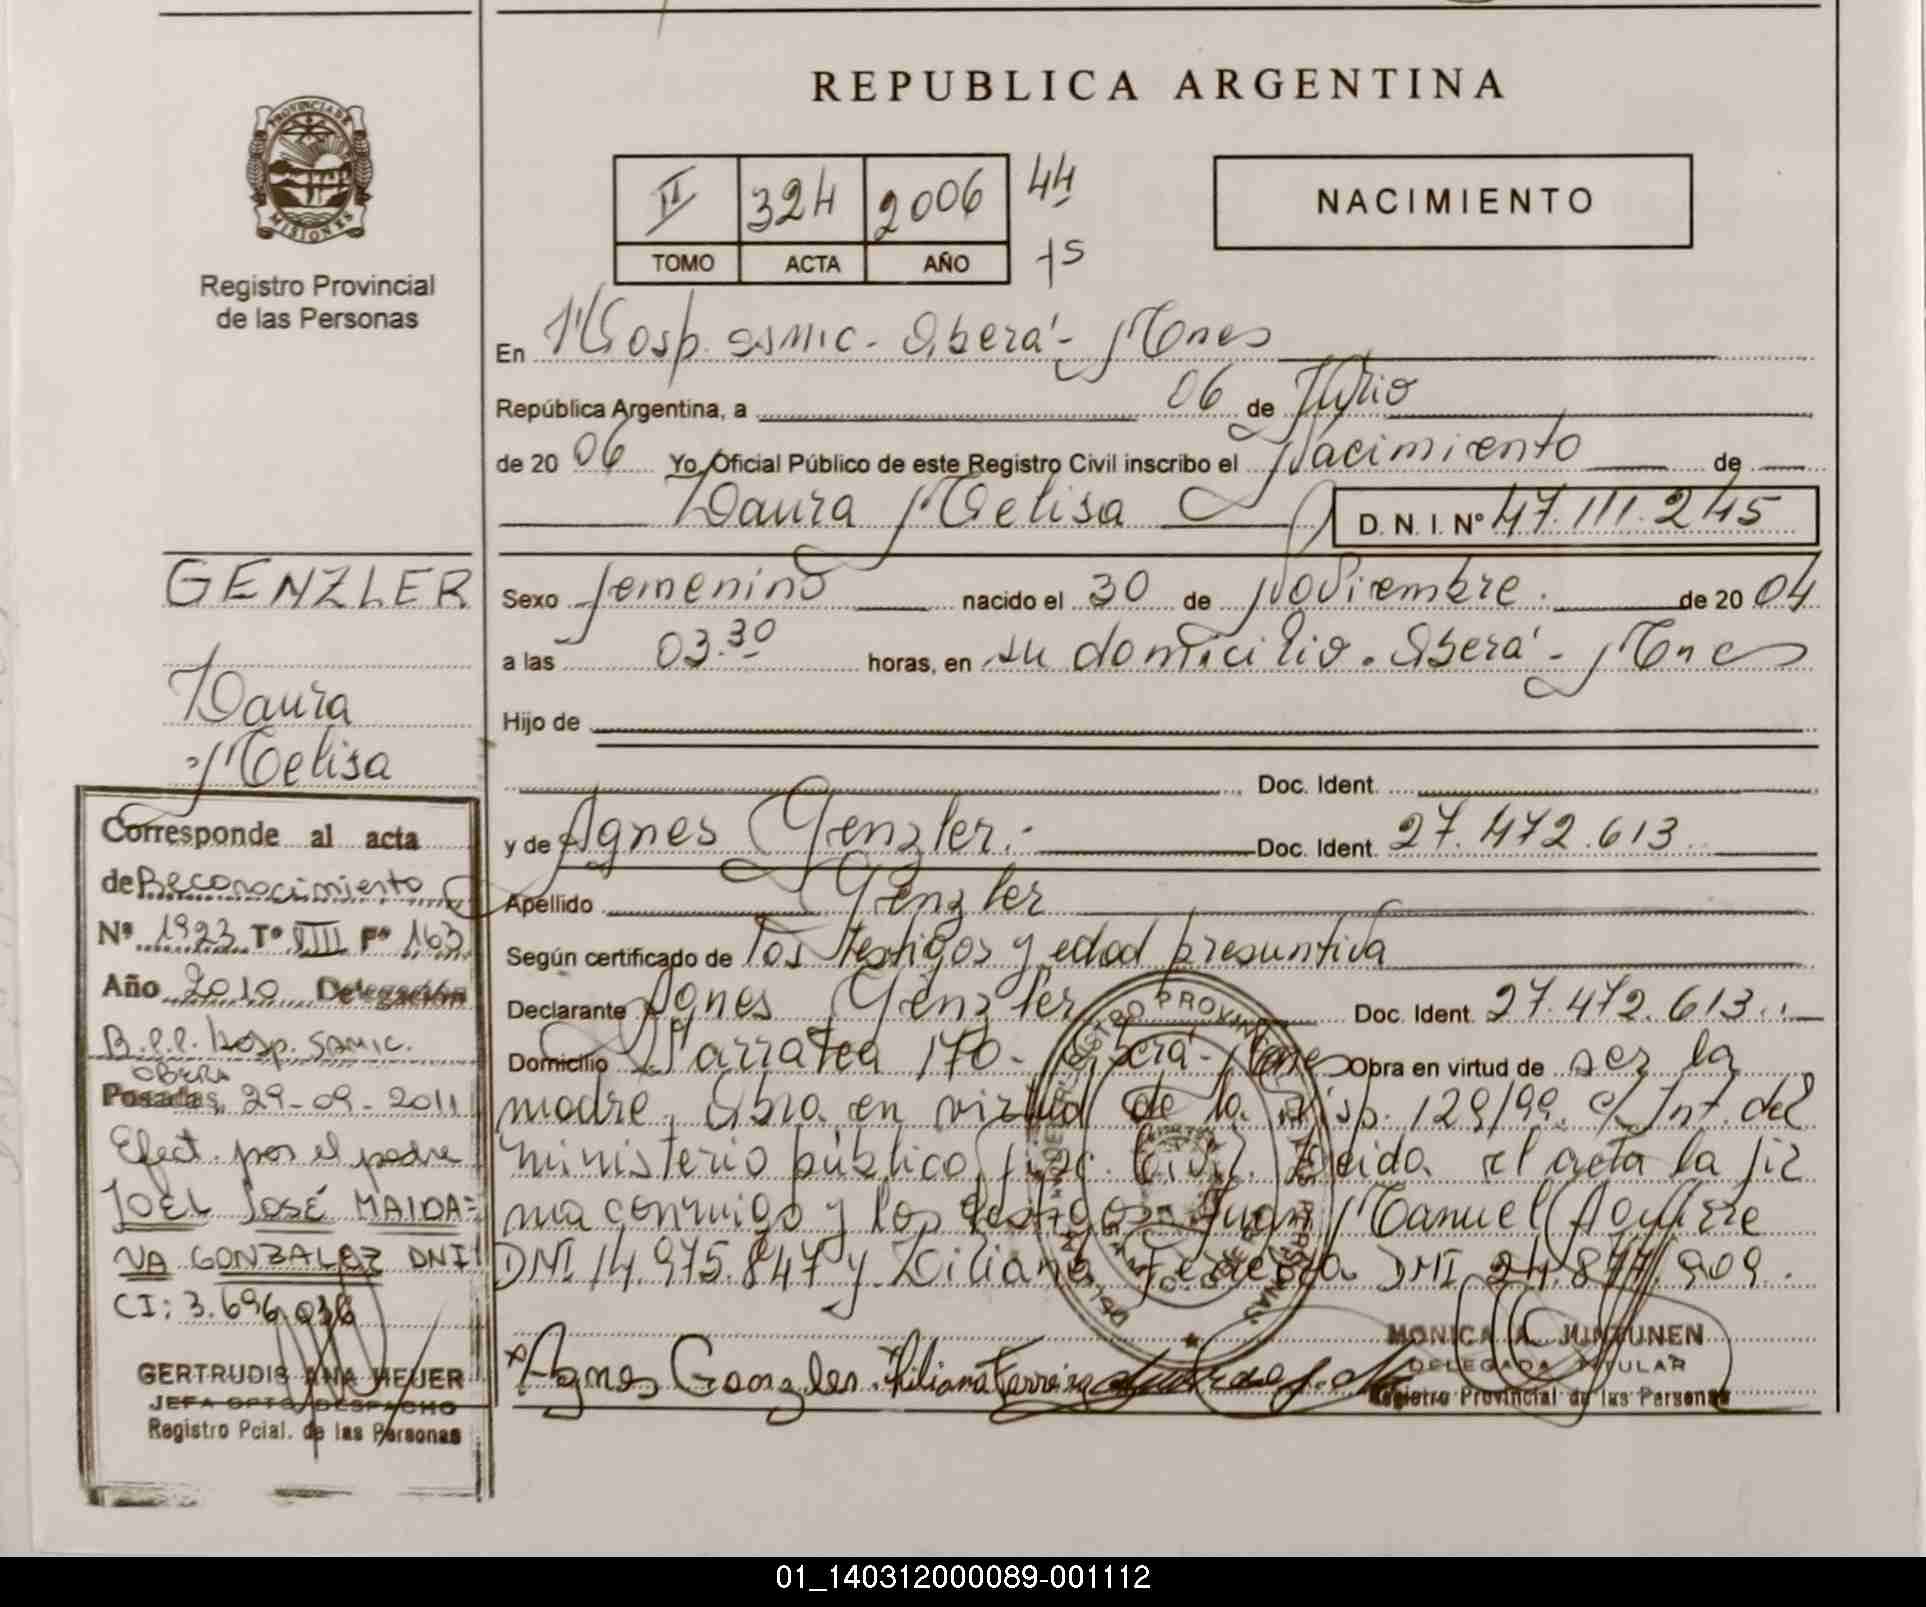 REPUBLICA ARGENTINA
PROVINCIA DE MISIONES
Registro Provincial
de las Personas
II 324 2006 44
TOMO ACTA AÑO 45
NACIMIENTO
En Hosp. samic - Oberá - Mnes
República Argentina, a 06 de Julio
de 20 06 Yo, Oficial Público de este Registro Civil inscribo el Nacimiento de
Laura Melisa D. N. I. Nº 47.111.245
Sexo femenino nacido el 30 de Noviembre. de 20 04
a las 03.30 horas, en su domicilio. Oberá - Mnes
Hijo de
Doc. Ident.
y de Agnes Genzler. Doc. Ident. 27.472.613
Apellido Genzler
Según certificado de los testigos y edad presuntiva
Declarante Agnes Genzler Doc. Ident. 27.472.613
Domicilio Larratea 170 - Oberá - Mnes Obra en virtud de ser la
madre. Obra en virtud de la Disp. 129/99. c/Int. del
ministerio público, Civil. Leida el acta la fir
ma conmigo y los testigos Juan Manuel Aguirre
DNI. 14.975.847 y Liliana Ferreira DNI 24.877.909.
Agnes Genzler Liliana Ferreira
MONICA A. JUNTUNEN
DELEGADA TITULAR
Registro Provincial de las Personas
GENZLER
Laura
Melisa
Corresponde al acta
de Reconocimiento
Nº 1923 Tº VIII Fº 163
Año 2010 Delegación
R.P.P. Hosp. SAMIC.
OBERA
Posadas, 29-09-2011
Efect. por el padre
JOEL JOSÉ MAIDA=
NA GONZALEZ DNI
CI: 3.696.038
GERTRUDIS ANA HEUER
JEFA DPTO. DESPACHO
Registro Pcial. de las Personas
01_140312000089-001112